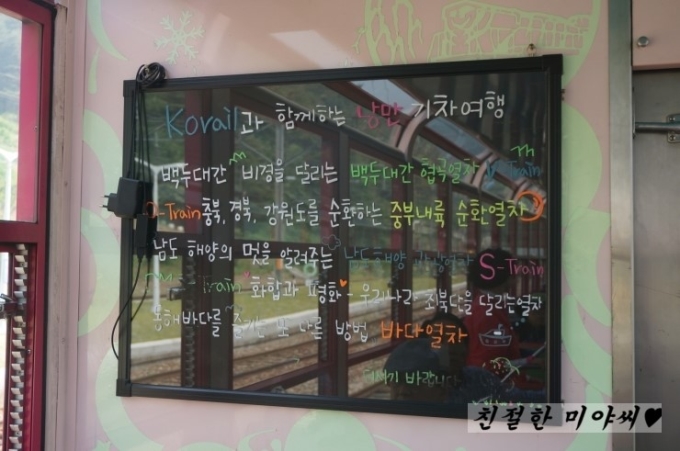 Korail과 함께하는 낭만 기차여행
백두대간 비경을 달리는 백두대간 협곡열차 V-Train
O-Train 충북, 경북, 강원도를 순환하는 중부내륙 순환열차
남도 해양의 멋을 알려주는 남도 해양 관광열차 S-Train
-Train 화합과 평화 - 우리나라 최북단을 달리는 열차
동해바다를 즐기는 또 다른 방법 바다열차
바랍니다
친절한 미야씨♥